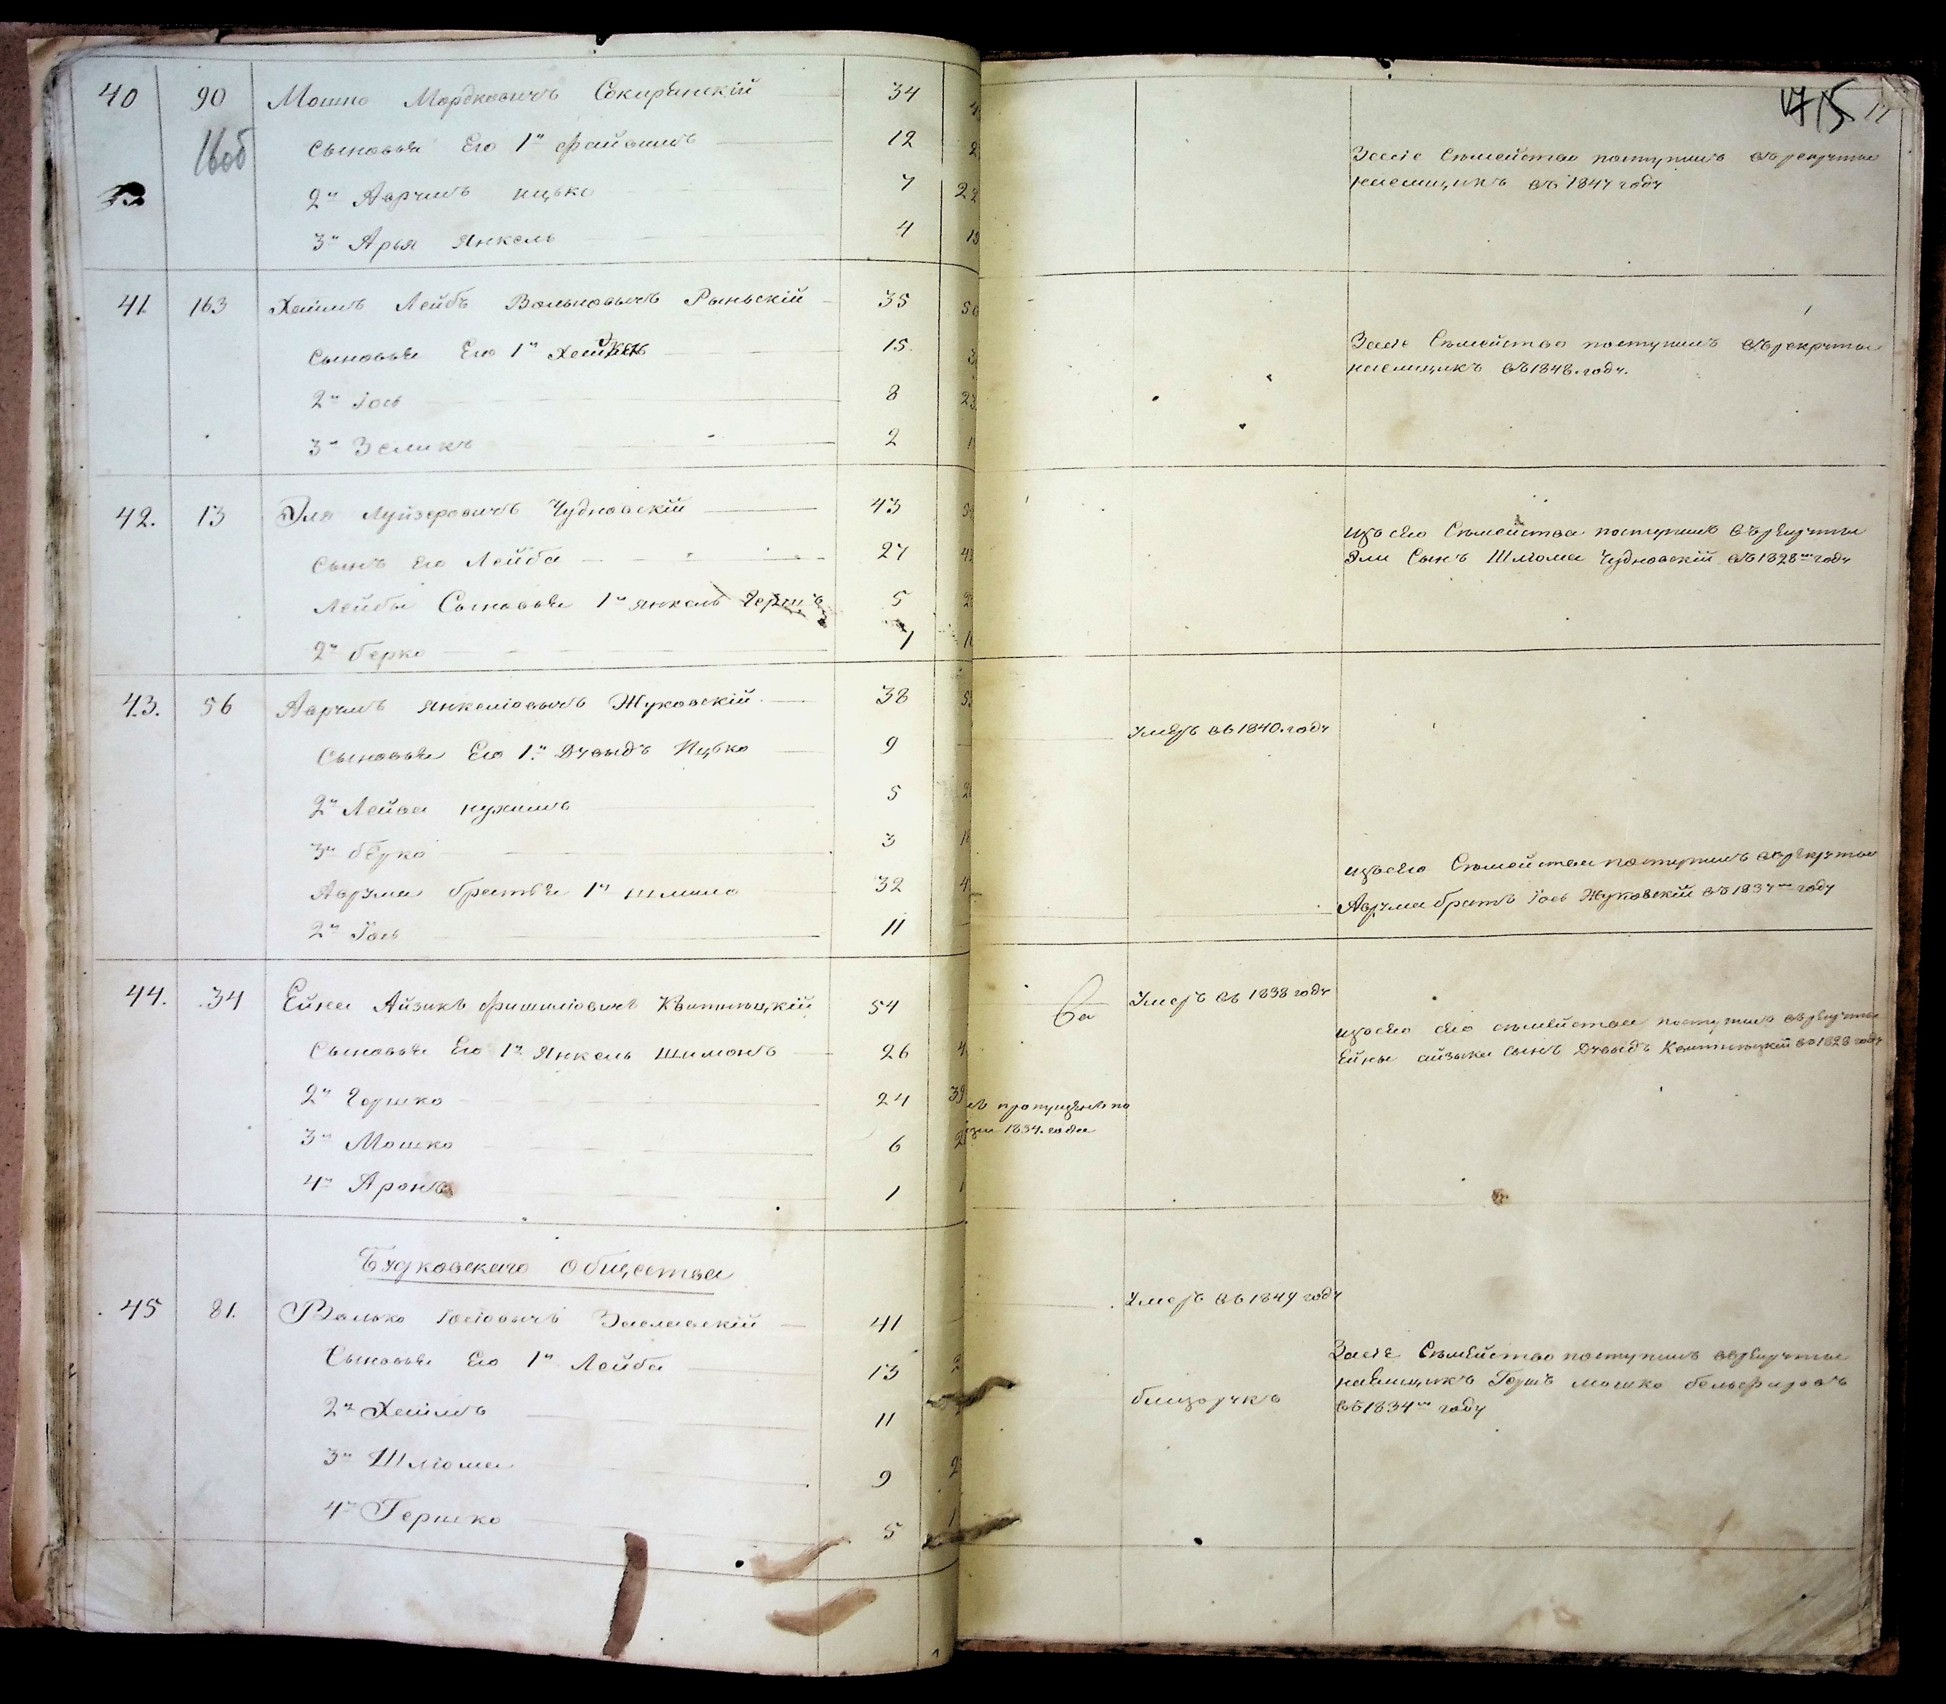 40 90 Мошко Мордковичъ Сокирянскій 34
16об Сыновья Его 1й Файвишъ 12
2й Аврумъ Ицько 7 22
3й Арья Янкель 4
41 163 Хаимъ Лейбъ Вольковичъ Рыньскій 35
Сыновья Его 1й 15
2й Іось 8
3й Зеликъ 2
42. 13 Эля Луйзеровичъ Чудновскій 43
Сынъ Его Лейба 27
Лейбы Сыновья 1й Янкель Гершъ 5
2й Берко 1
43. 56 Аврумъ Янкеліовичъ Жуковскій 38
Сыновья Его 1й Дувыдъ Ицько 9
2й Лейба Нухимъ 5
3й 3
Аврума братья 1й Шмило 32
2й Іось 11
44. 34 Ейна Айзикъ Фишиліовичъ 54
Сыновья Его 1й Янкель Шимонъ 26
2й Гершко 24 39
3й Мошко 6
4й Аронъ 1
Будковскаго Общества
45 81. Волько Іосіовичъ Заславскій 41
Сыновья Его 1й Лейба 13
2й Хаимъ 11
3й Шліома 9
4й Гершко 5
15
За сіе Съмейство поступилъ въ рекруты
наемщикъ въ 1847 году
За сіе Съмейство поступилъ въ рекруты
наемщикъ въ 1848. году.
изъ сего Съмейства поступилъ въ рекруты
Эли Сынъ Шліома Чудновскій въ 1828м году
Умеръ въ 1840. году
изъ сего Съмейства поступилъ въ рекруты
Аврума братъ Іось Жуковскій въ 1837м году
Умеръ въ 1838 году
изъ сего съмейства поступилъ въ рекруты
Ейны Айзыка сынъ Дувыдъ въ 1828 году
пропущенъ по
1834. года
Умеръ въ 1849 году
За сіе Съмейство поступилъ въ рекруты
наемщикъ Гершъ Мошко
въ 1834м году